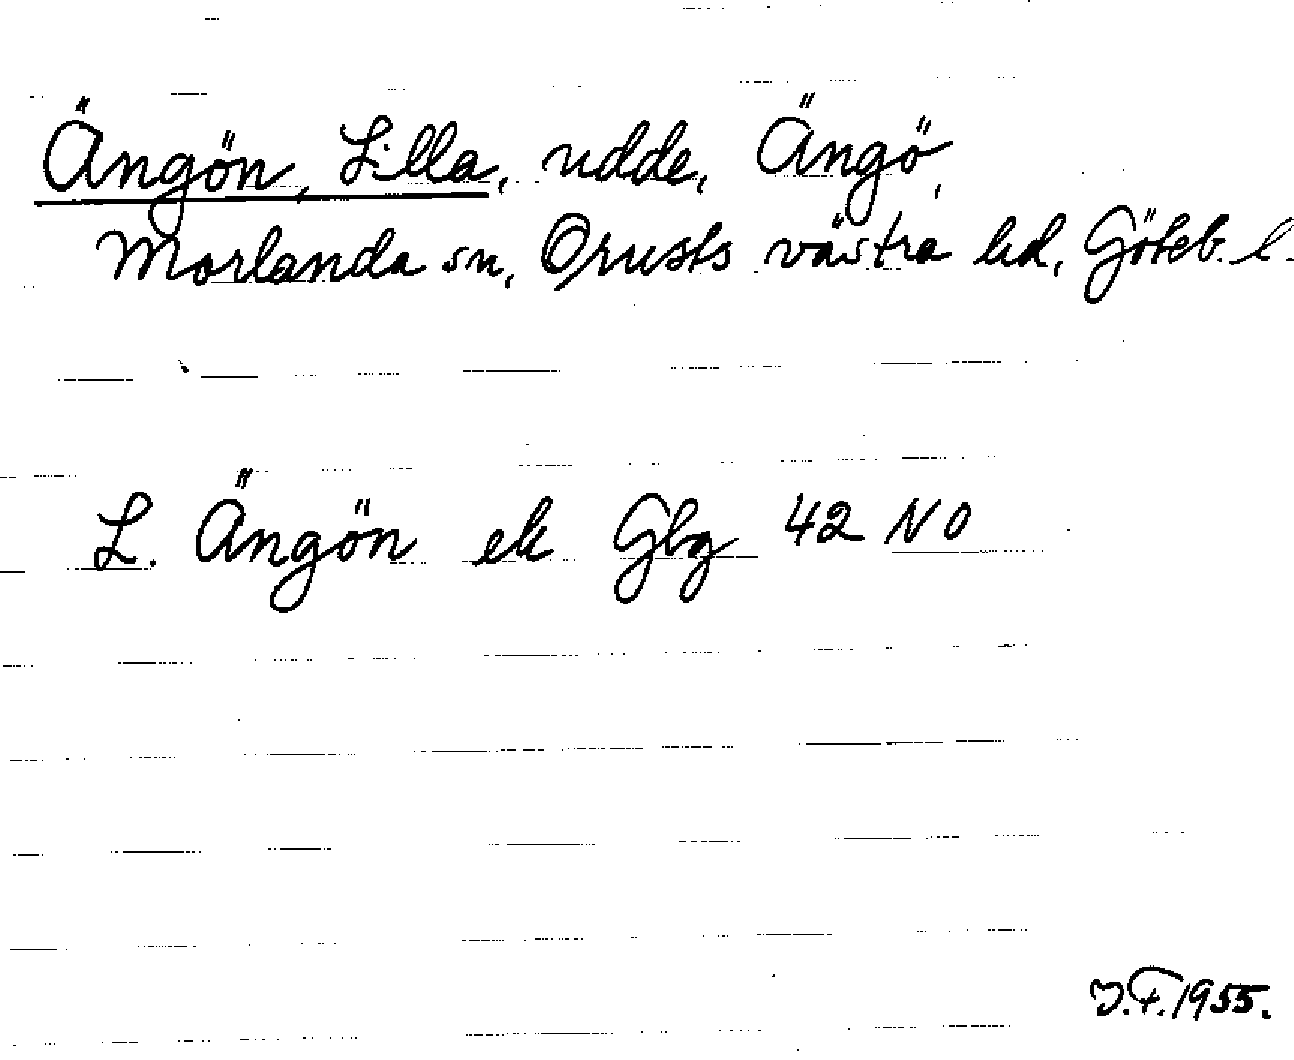 Ängön, Lilla, udde, Ängö,
Morlanda sn, Orusts västra hd, Göteb. l.
L. Ängön ek Gbg 42 NO
J.F. 1955.